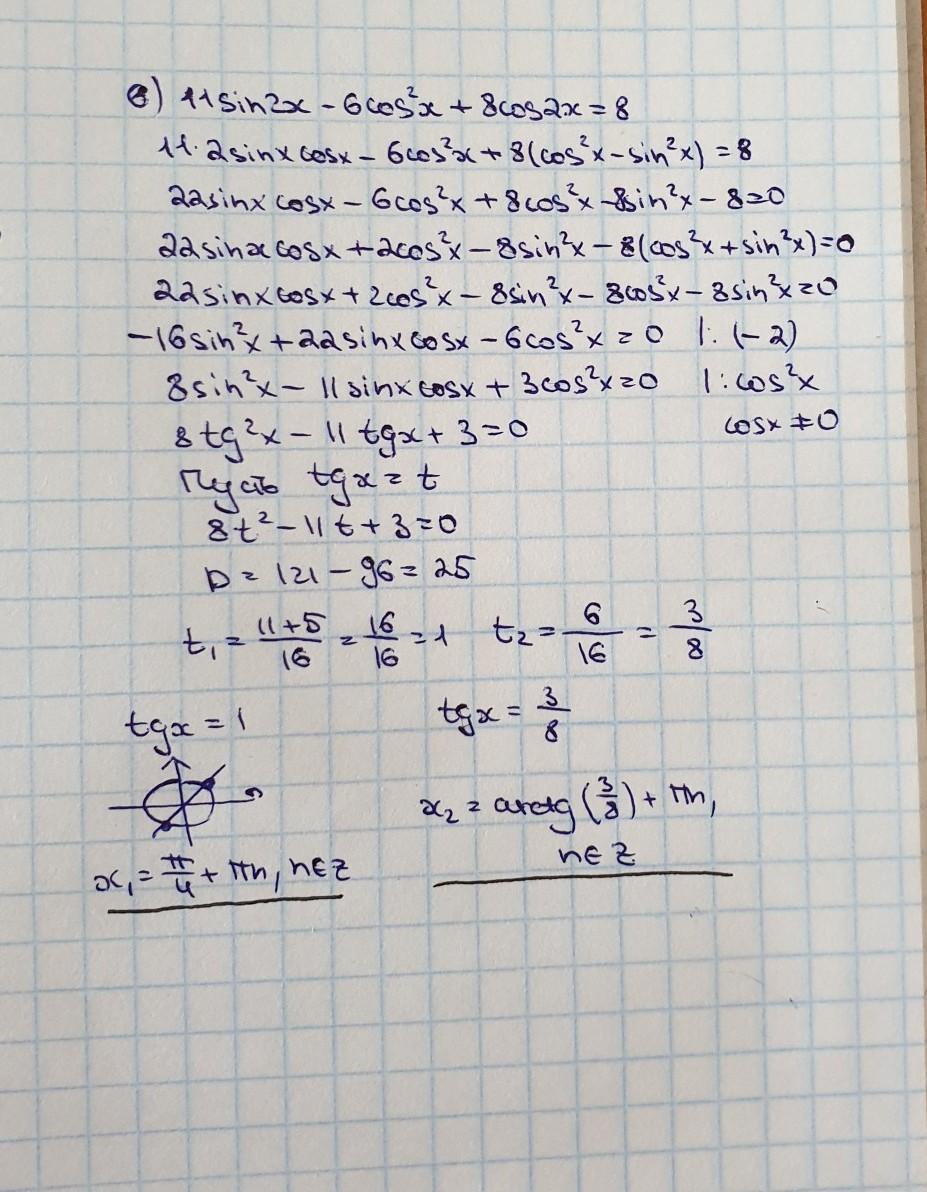 в) 11sin2x - 6cos²x + 8cos2x = 8
11·2sinx cosx - 6cos²x + 8(cos²x - sin²x) = 8
22sinx cosx - 6cos²x + 8cos²x - 8sin²x - 8 = 0
22sinx cosx + 2cos²x - 8sin²x - 8(cos²x + sin²x) = 0
22sinx cosx + 2cos²x - 8sin²x - 8cos²x - 8sin²x = 0
-16sin²x + 22sinx cosx - 6cos²x = 0 |: (-2)
8sin²x - 11sinx cosx + 3cos²x = 0 |: cos²x
8tg²x - 11tgx + 3 = 0 cosx ≠ 0
Пусть tgx = t
8t² - 11t + 3 = 0
D = 121 - 96 = 25
t₁ = (11+5)/16 = 16/16 = 1 t₂ = 6/16 = 3/8
tgx = 1 tgx = 3/8
x₂ = arctg(3/8) + πn,
n∈Z
x₁ = π/4 + πn, n∈Z